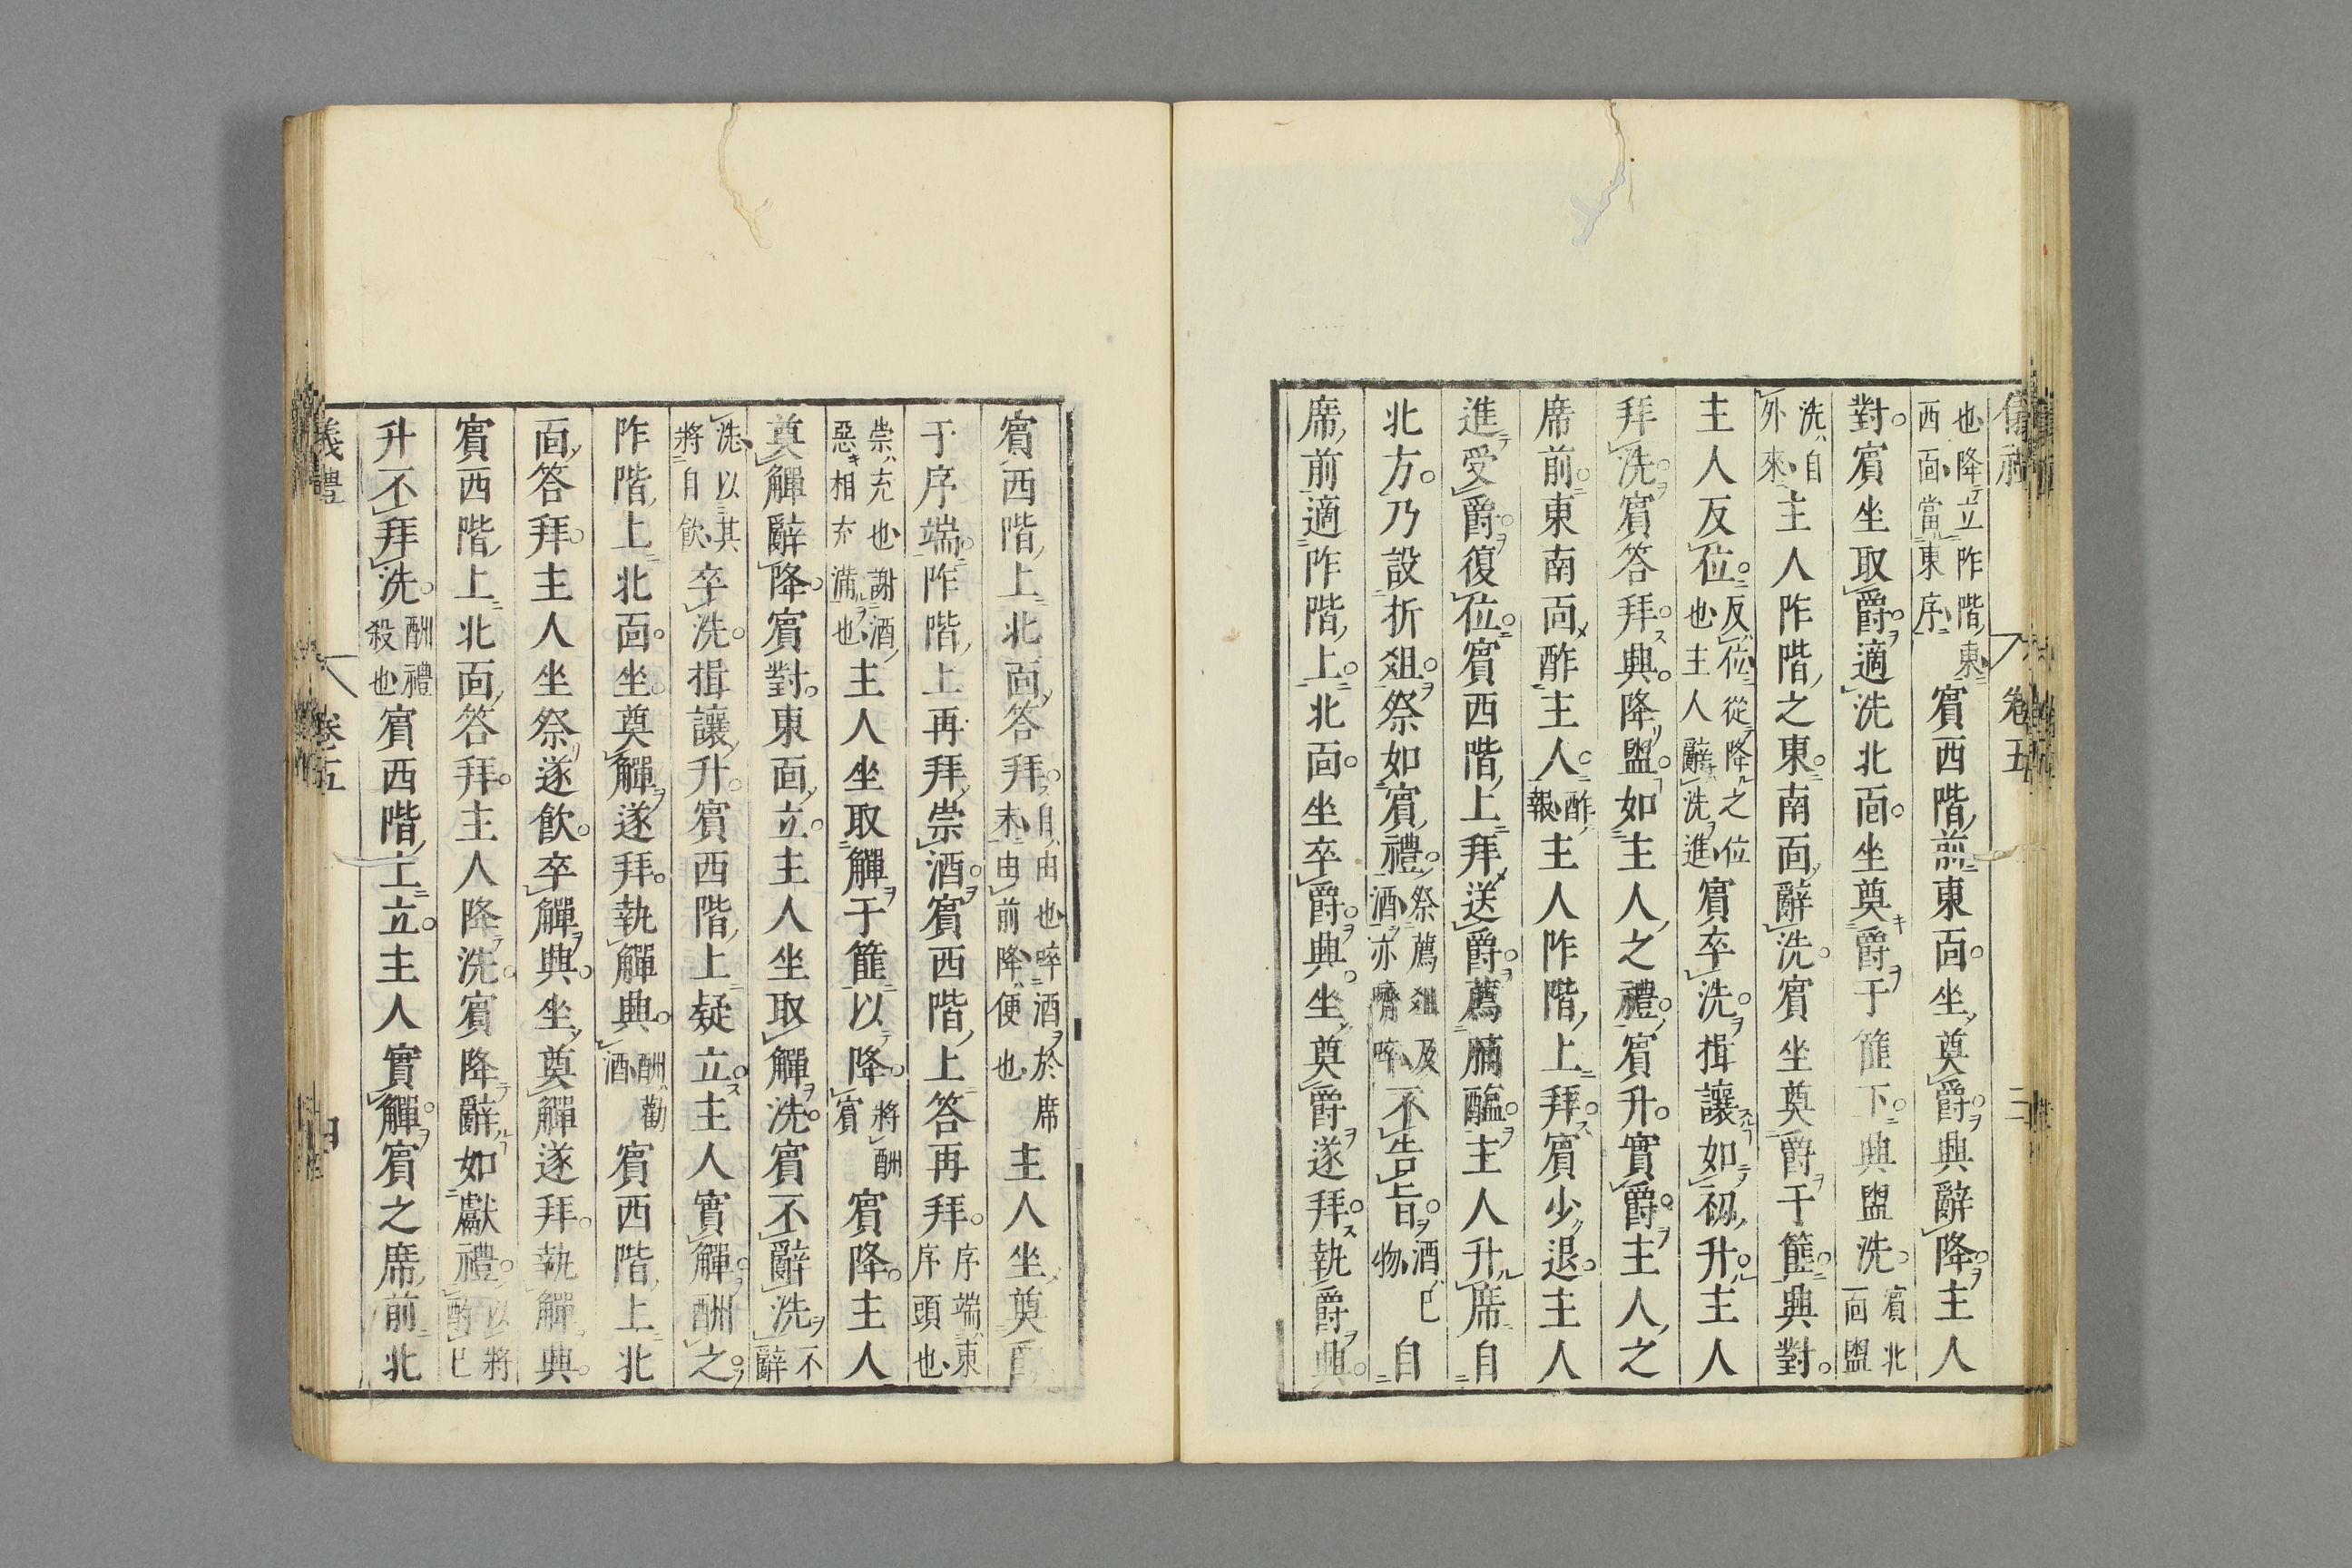 儀禮 卷五 三
也降立阼階東
西面當東序
賓西階前東面坐奠爵興辭降主人
對賓坐取爵適洗北面坐奠爵于篚下興盥洗
賓北
面盥
洗自
外來
主人阼階之東南面辭洗賓坐奠爵于篚興對
主人反位
反位從降之位
也主人辭洗進
賓卒洗揖讓如初升主人
拜洗賓答拜興降盥如主人之禮賓升實爵主人之
席前東南面酢主人
酢
報
主人阼階上拜賓少退主人
進受爵復位賓西階上拜送爵薦脯醢主人升席自
北方乃設折俎祭如賓禮
祭薦俎及酒
酒亦嚌啐
不告旨
酒已
物
自
席前適阼階上北面坐卒爵興坐奠爵遂拜執爵興
賓西階上北面答拜
自由也啐酒於席
末由前降便也
主人坐奠爵
于序端阼階上再拜崇酒賓西階上答再拜
序端東
序頭也
崇充也謝酒
惡相充滿也
主人坐取觶于篚以降
將酬
賓
賓降主人
奠觶辭降賓對東面立主人坐取觶洗賓不辭洗
不
辭
洗以其
將自飲
卒洗揖讓升賓西階上疑立主人實觶酬之
阼階上北面坐奠觶遂拜執觶興
酬勸
酒
賓西階上北
面答拜主人坐祭遂飲卒觶興坐奠觶遂拜執觶興
賓西階上北面答拜主人降洗賓降辭如獻禮
以將
酌已
升不拜洗
酬禮
殺也
賓西階上立主人實觶賓之席前北
儀禮 卷五 四